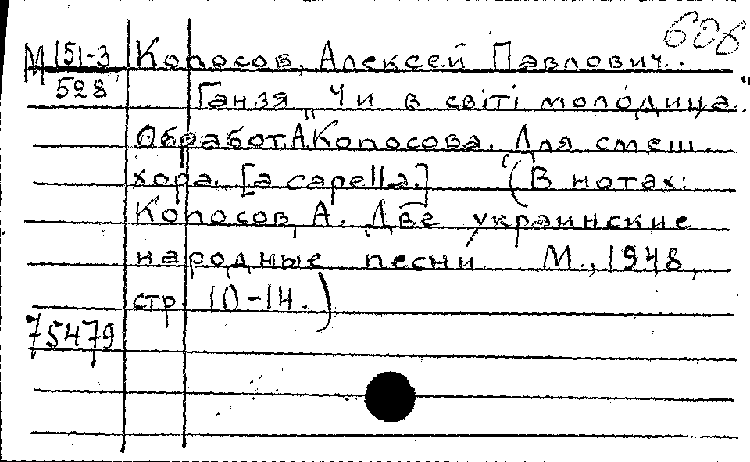 606
М 151-3 Копосов, Алексей Павлович.
528 Ганзя „Чи в світі молодица"
Обработ. А. Копосова. Для смеш.
хора. [a capella.] (В нотах:
Копосов, А. Две украинские
народные песни М., 1948,
стр. 10-14.)
75479